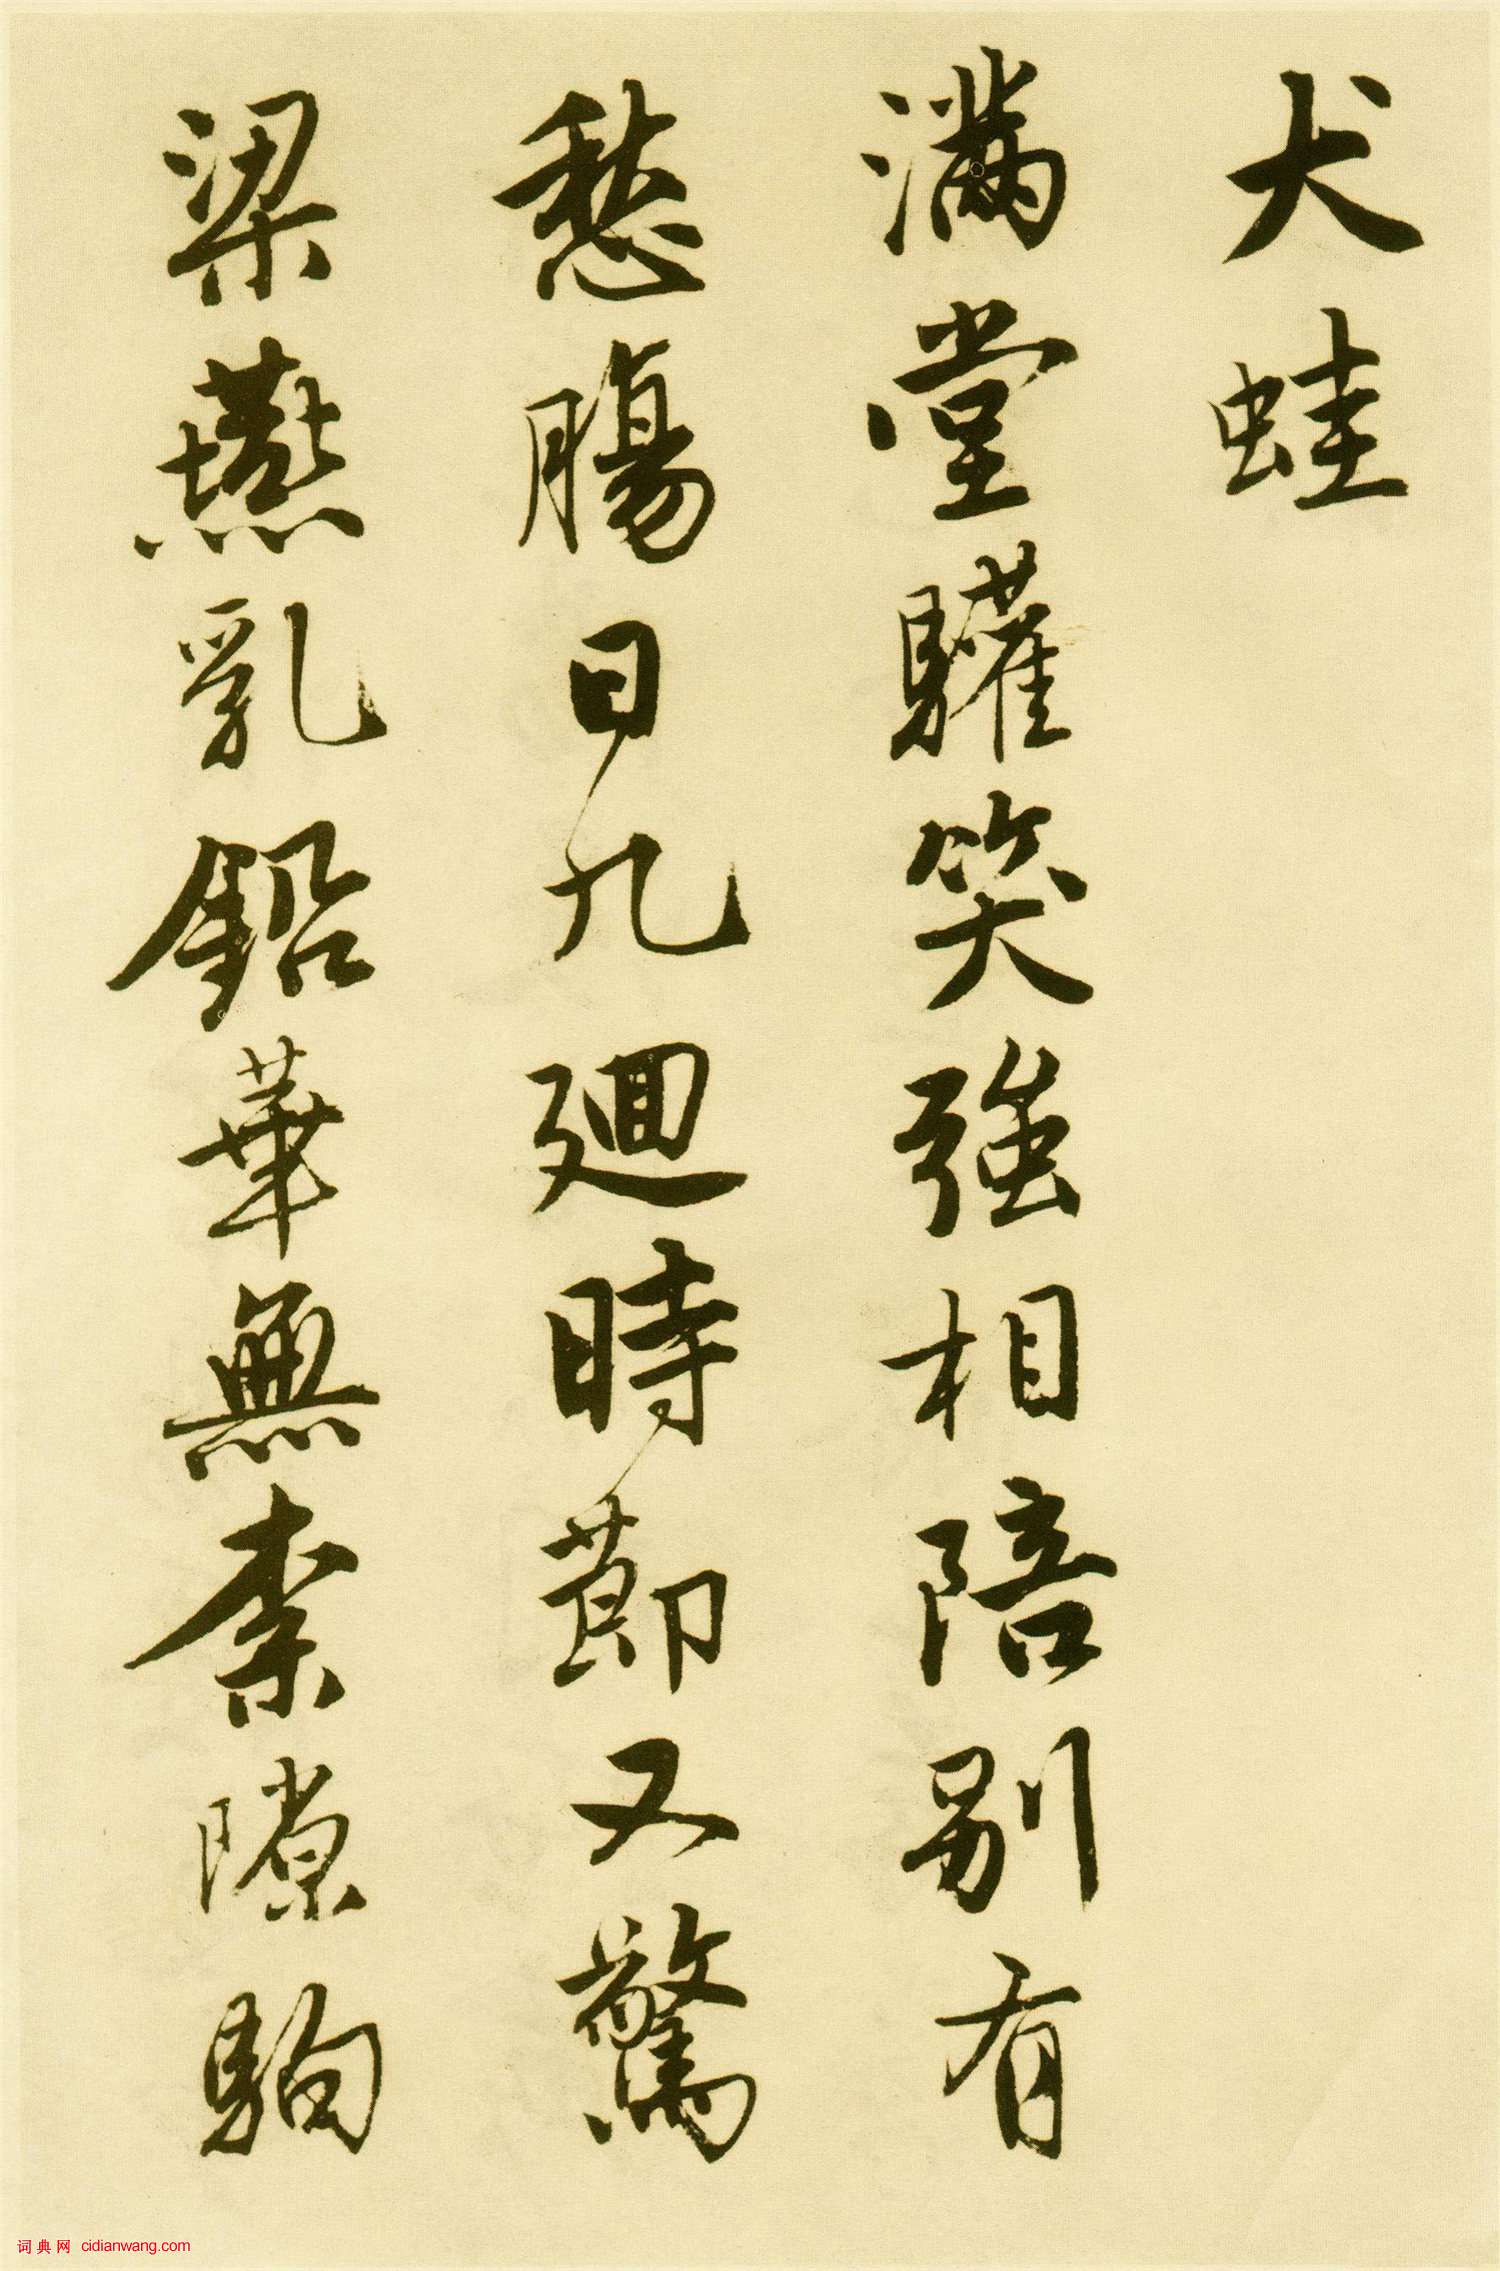 犬蛙
滿堂驩笑強相陪別有
愁腸日九迴時節又驚
梁燕乳鉛華無柰隙駒
词典网 cidianwang.com